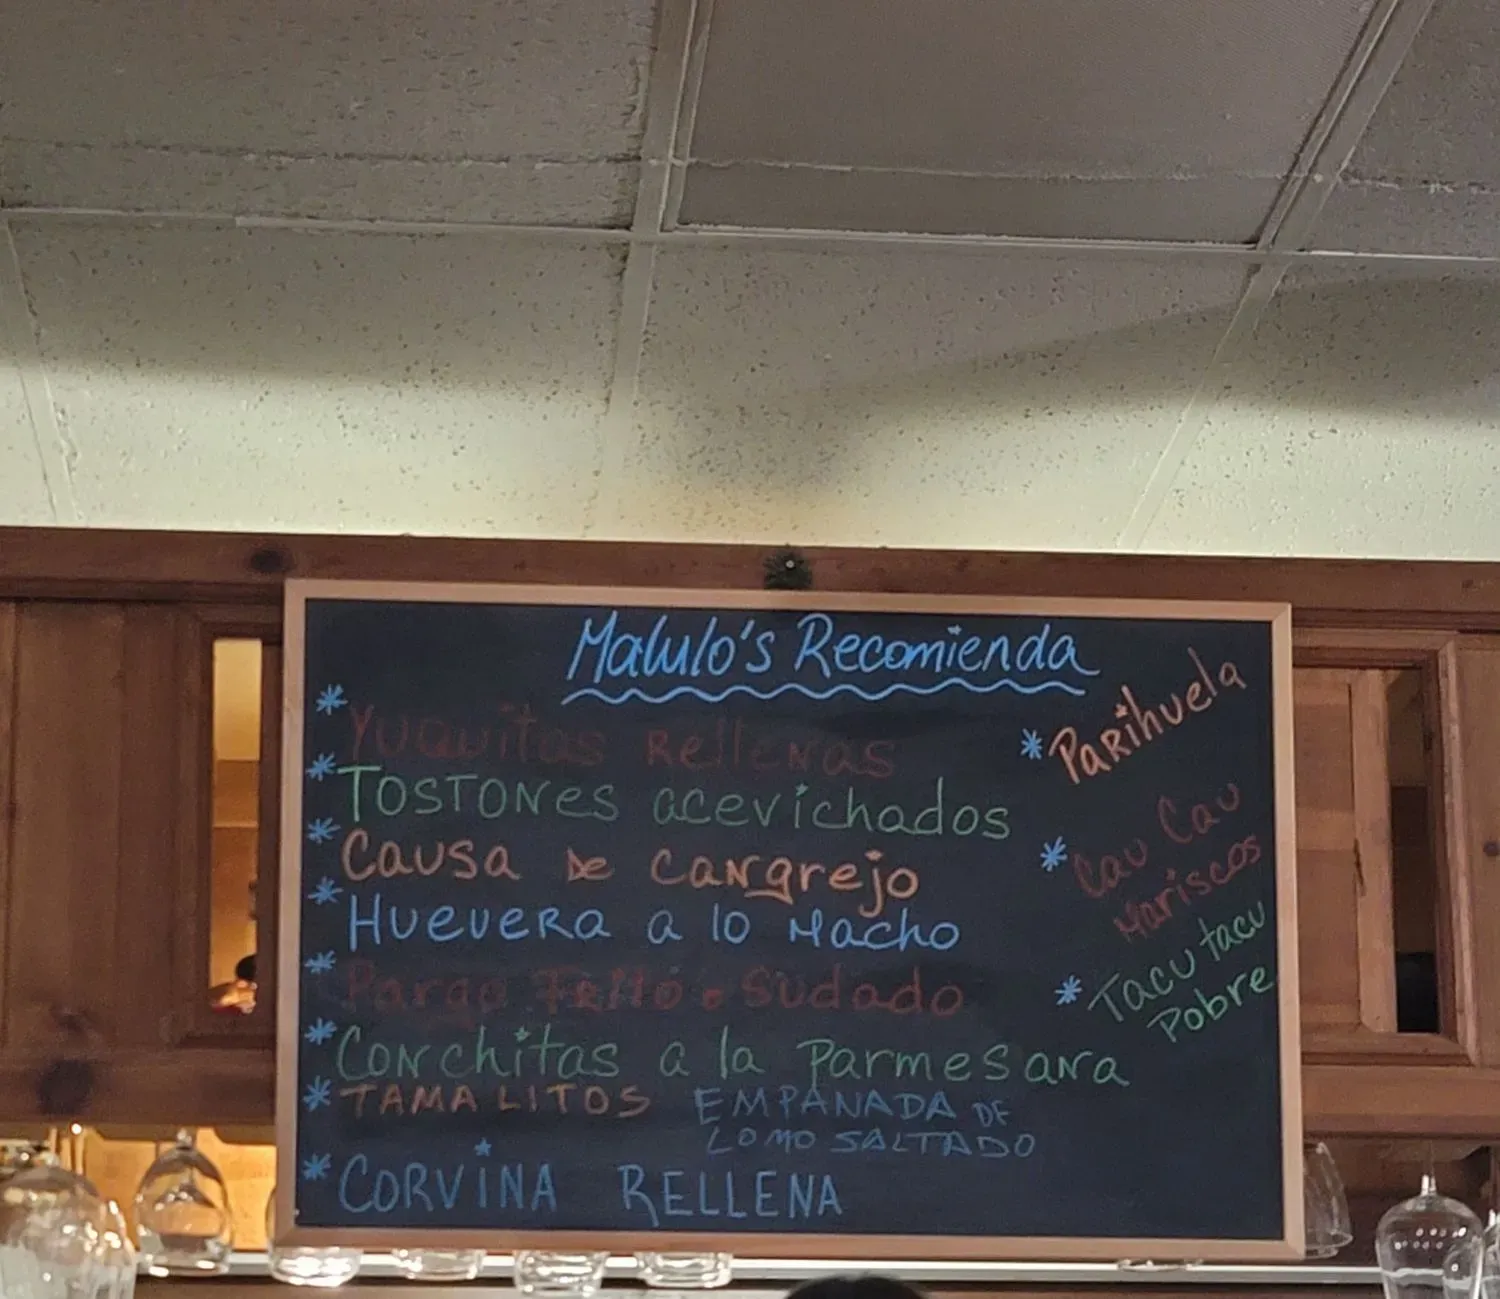 Malulo's Recomienda
* Yuquitas Rellenas
* TOSTONES acevichados
* Causa de cangrejo
* Huevera a lo Macho
* Pargo Frito o Sudado
* Conchitas a la parmesana
* TAMALITOS EMPANADA DE
LOMO SALTADO
* CORVINA RELLENA
* Parihuela
* Cau Cau
Mariscos
* Tacu tacu
Pobre